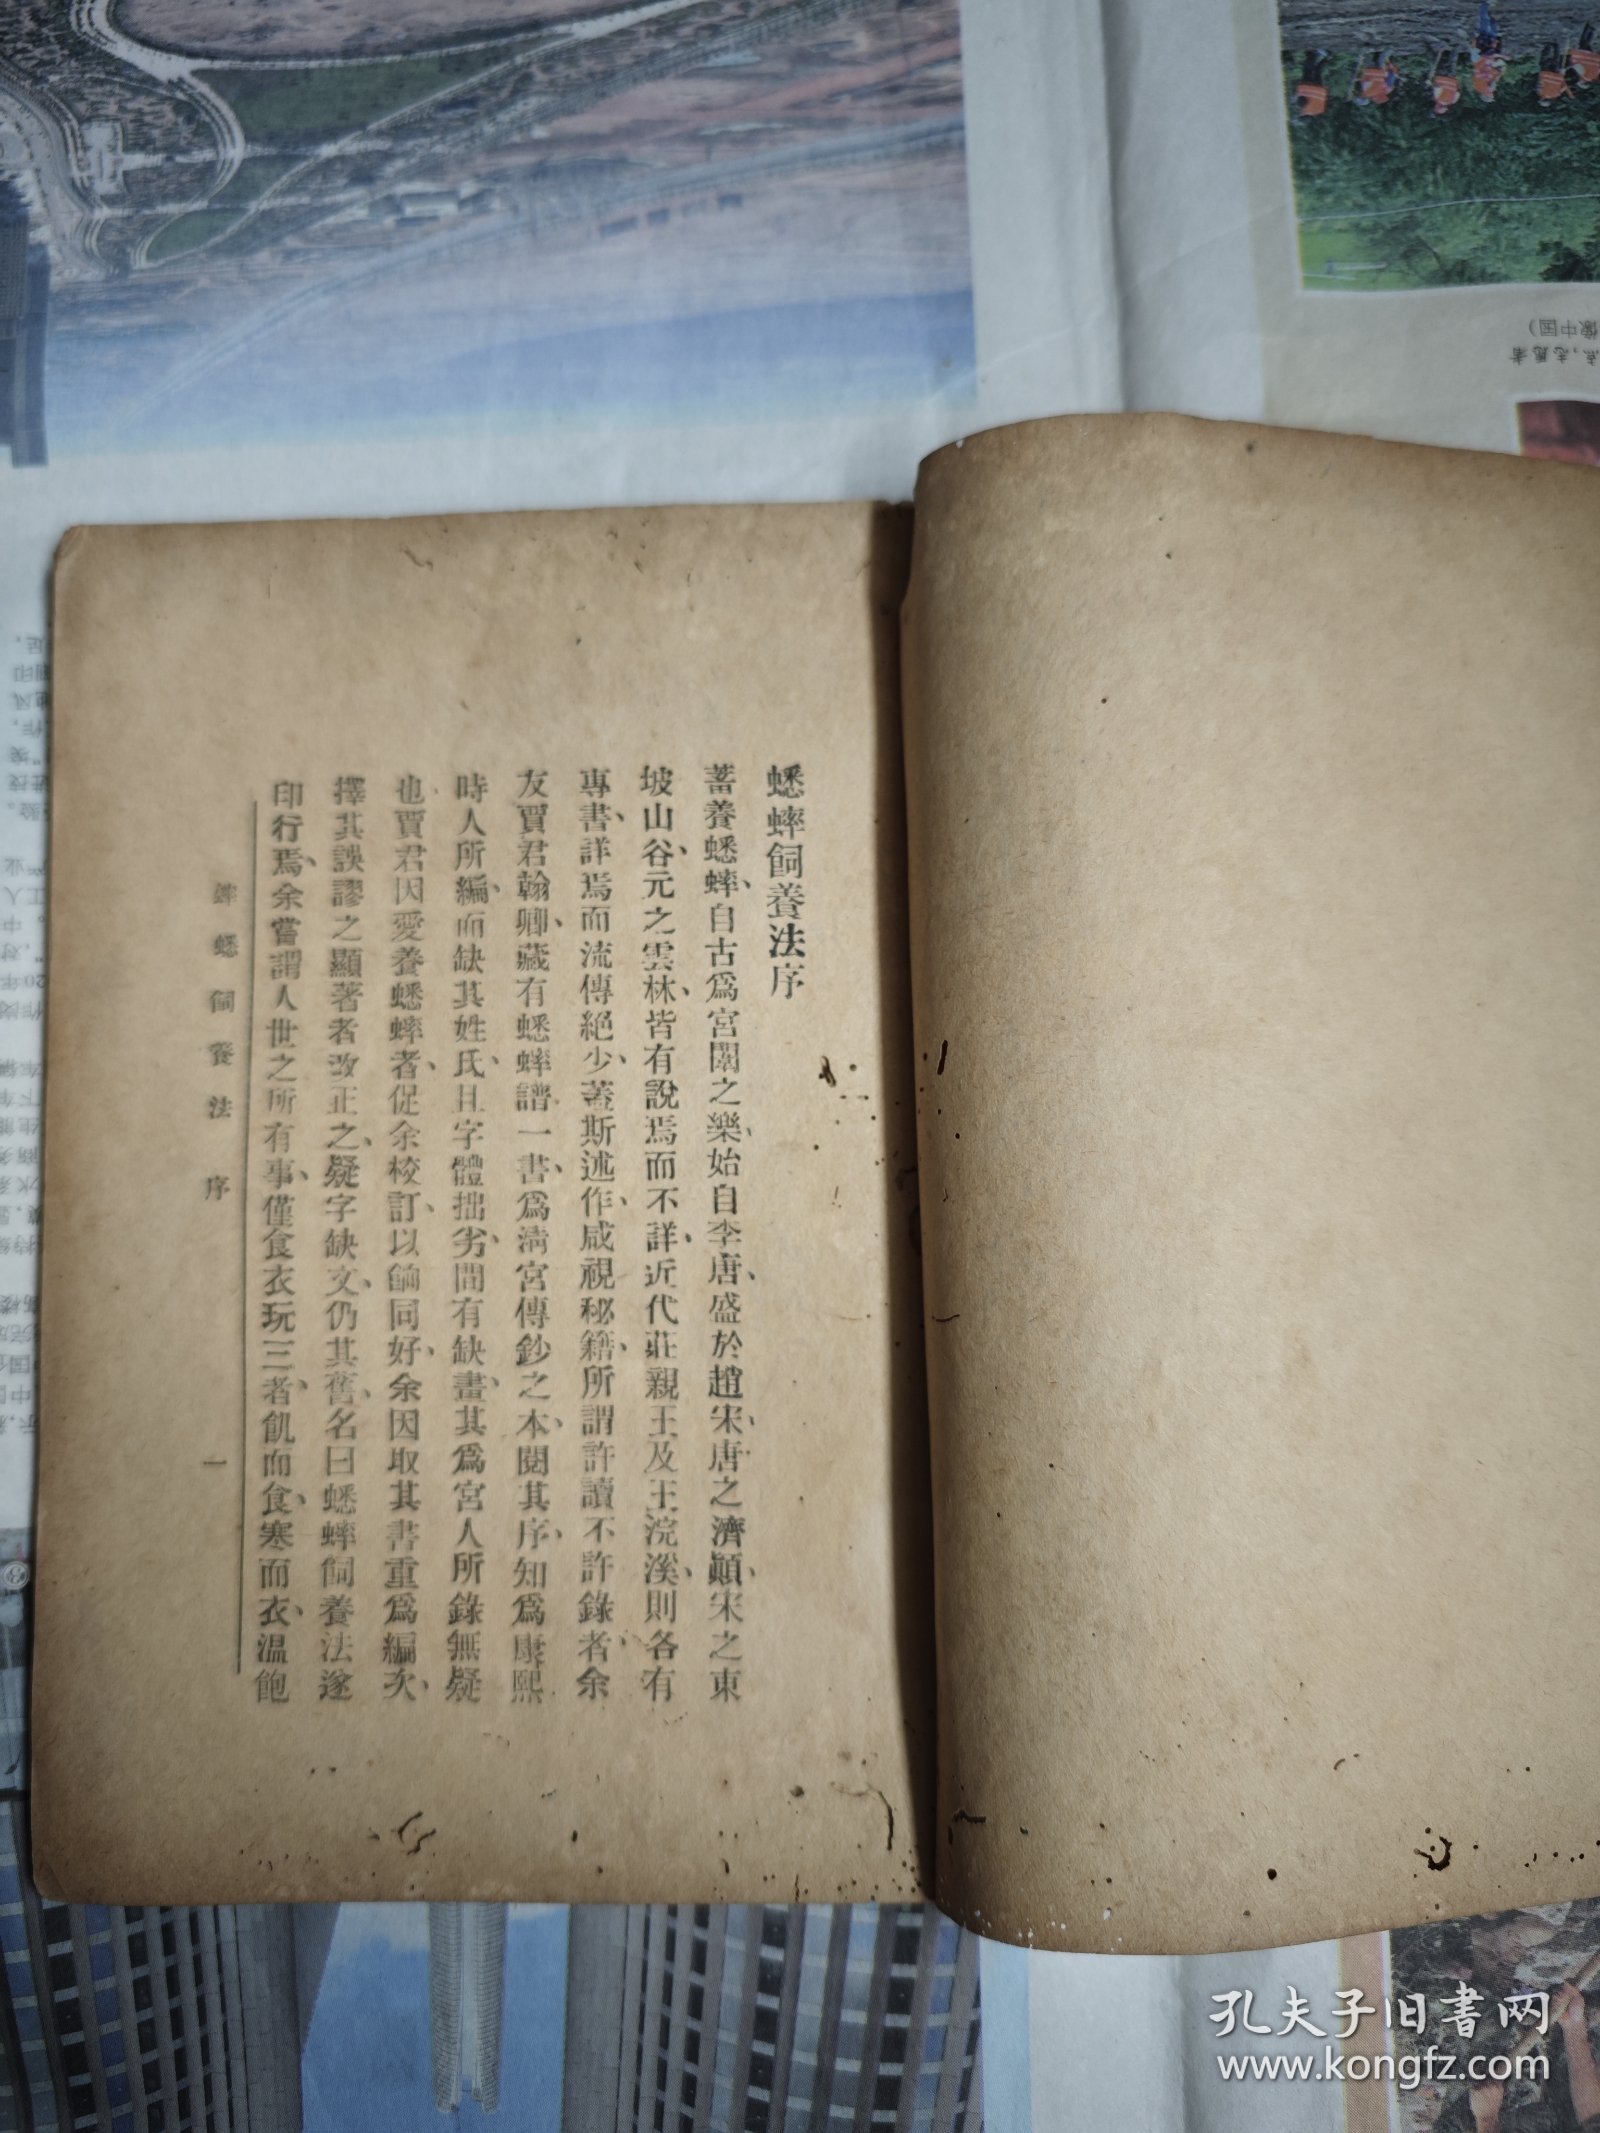 蟋蟀飼養法序
蓄養蟋蟀、自古爲宮闈之樂、始自李唐、盛於趙宋、唐之濟顚、宋之東
坡山谷、元之雲林、皆有說焉而不詳、近代莊親王及王浣溪、則各有
專書、詳焉而流傳絕少、蓋斯述作、咸視秘籍、所謂許讀不許錄者、余
友賈君翰卿、藏有蟋蟀譜一書、爲淸宮傳鈔之本、閱其序、知爲康熙
時人所編、而缺其姓氏、且字體拙劣、間有缺畫、其爲宮人所錄無疑
也、賈君因愛養蟋蟀者、促余校訂、以餉同好、余因取其書重爲編次、
擇其誤謬之顯著者改正之、疑字缺文、仍其舊、名曰蟋蟀飼養法遂
印行焉、余嘗謂人世之所有事、僅食衣玩三者、飢而食、寒而衣、溫飽
蟀蟋飼養法 序
一
像中国)
点,志愿者
孔夫子旧书网
www.kongfz.com